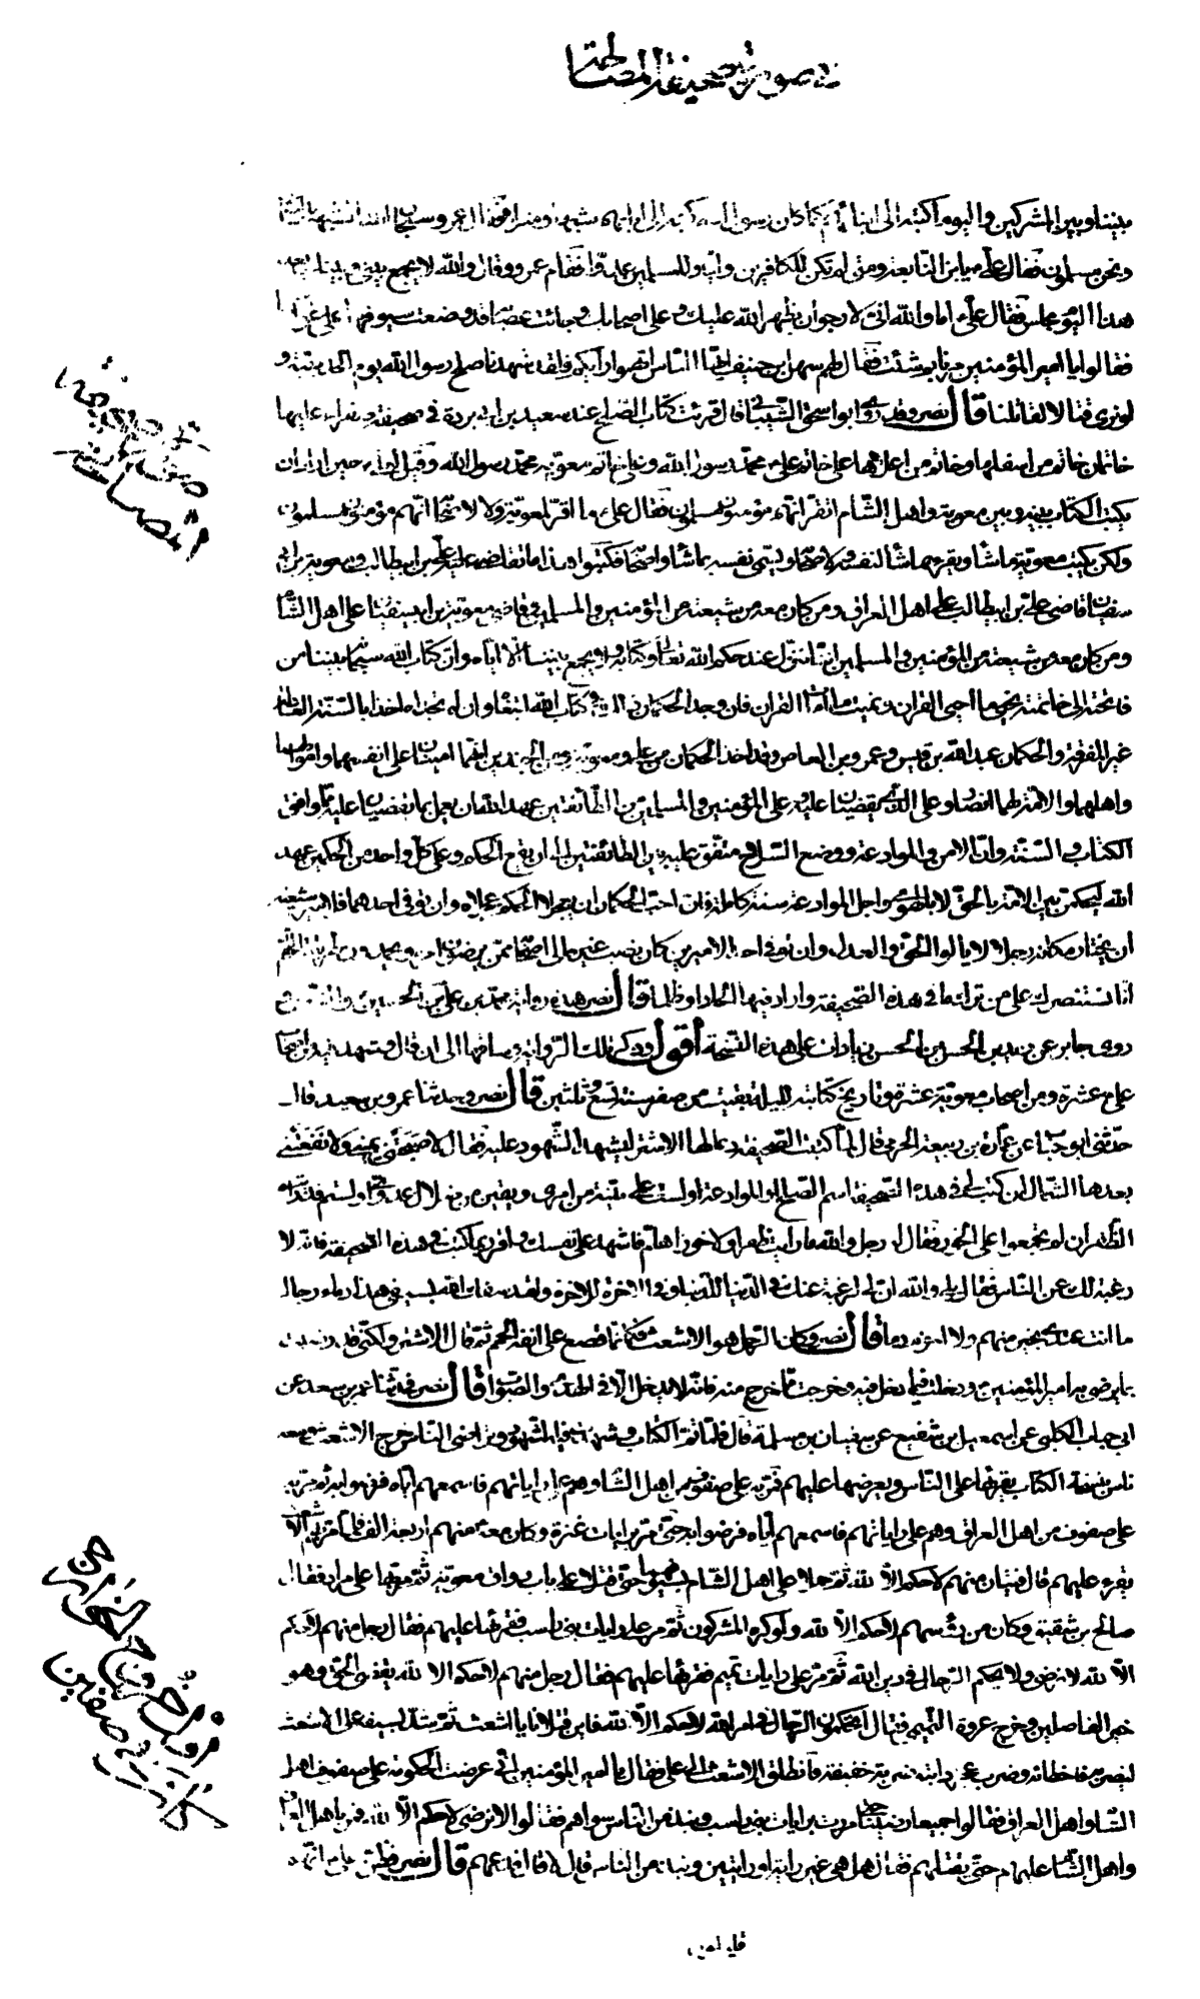 في صورة صحيفة المصالحة
بيننا وبين المشركين واليوم اكتبه الى ابنائهم كما كان رسول الله كتبه الى ابائهم شبها ومثلا فقال عمرو سبحان الله اتشبهنا
ونحن مسلمون فقال علي يابن النابغة ومتى لم تكن للكافرين وليا وللمسلمين عدوا فقام عمرو وقال والله لا يجمع بيني وبينك بعد
هذا اليوم مجلس فقال علي اما والله اني لارجو ان يظهر الله عليك وعلى اصحابك وجاءت عصابة قد وضعت سيوفها على
فقالوا يا امير المؤمنين مرنا بم شئت فقال لهم سهل بن حنيف ايها الناس اتهموا رايكم فلقد شهدنا صلح رسول الله يوم الحديبية و
لو نرى قتالا لقاتلنا قال نصر وقد روى ابو اسحق الشيباني قال قرئت كتاب الصلح عند سعيد بن ابي بردة في صحيفة صفراء عليها
خاتمان خاتم من اسفلها وخاتم من اعلاها على خاتم علي محمد رسول الله وعلى خاتم معوية محمد رسول الله وقيل لعلي حين اراد ان
يكتب الكتاب بينه وبين معوية واهل الشام اتقر انهم مؤمنون مسلمون فقال علي ما اقر لمعوية ولا لاصحابه انهم مؤمنون مسلمون
ولكن يكتب معوية ما شاء ويقر بما شاء لنفسه ولاصحابه ويسمي نفسه بما شاء واصحابه فكتبوا هذا ما تقاضى عليه علي بن ابيطالب ومعوية بن ابي
سفيان قاضى علي بن ابيطالب على اهل العراق ومن كان معه من شيعته من المؤمنين والمسلمين وقاضى معوية بن ابي سفيان على اهل الشام
ومن كان معه من شيعته من المؤمنين والمسلمين اننا ننزل عند حكم الله تعالى وكتابه ولا يجمع بيننا الا اياه وان كتاب الله سبحانه بيننا من
فاتحته الى خاتمته نحيي ما احيى القران ونميت ما امات القران فان وجد الحكمان ذلك في كتاب الله اتبعاه وان لم يجداه اخذا بالسنة العادلة
غير المفرقة والحكمان عبد الله بن قيس وعمرو بن العاص وقد اخذ الحكمان من علي ومعوية ومن الجندين انهما امينان على انفسهما واموالهما
واهلهما والامة لهما انصار وعلى الذي يقضيان عليه وعلى المؤمنين والمسلمين من الطائفتين عهد الله ان يعمل بما يقضيان عليه مما وافق
الكتاب والسنة وان الامن والموادعة ووضع السلاح متفق عليه بين الطائفتين الى ان يقع الحكم وعلى كل واحد من الحكمين عهد
الله ليحكمن بين الامة بالحق لا بالهوى واجل الموادعة سنة كاملة فان احب الحكمان ان يعجلا الحكم عجلاه وان توفي احدهما فلامير شيعته
ان يختار مكانه رجلا لا يالو الحق والعدل وان توفي احد الاميرين كان نصب غيره الى اصحابه ممن يرضون امره ويحمدون طريقته اللهم
انا نستنصرك على من ترك ما في هذه الصحيفة واراد فيها الحادا وظلما قال نصر هذه رواية محمد بن علي بن الحسين والشعبي
روى جابر عن زيد بن الحسن بن الحسن زيادات على هذه النسخة اقول وذكر تلك الرواية وساقها الى ان قال وشهد فيه من اصحاب
علي عشرة ومن اصحاب معوية عشرة وتاريخ كتابته لليلة بقيت من صفر سنة تسع وثلثين قال نصر وحدثنا عمرو بن سعيد قال
حدثني ابو جناب عن عمارة بن ربيعة الجرمي قال لما كتبت الصحيفة دعا لها الاشتر ليشهد الشهود عليه فقال لا صحبتني يميني ولا نفعتني
بعدها الشمال ان كتب لي في هذه الصحيفة اسم الصلح او الموادعة اولست على بينة من امري ويقين من ضلال عدوي اولستم قد رايتم
الظفر ان لم تجمعوا على الخور فقال له رجل والله ما رايت ظفرا ولا خورا هلم فاشهد على نفسك واقرر بما كتب في هذه الصحيفة فانه لا
رغبة لك عن الناس فقال بلى والله ان لي لرغبة عنك في الدنيا للدنيا وفي الاخرة للاخرة ولقد سفك الله بسيفي هذا دماء رجال
ما انت عندي بخير منهم ولا احرم دما قال نصر وكان الرجل هو الاشعث فكانما قصع على انفه الحمم ثم قال الاشتر ولكني قد رضيت
بما يرضى به امير المؤمنين ودخلت فيما دخل فيه وخرجت مما خرج منه فانه لا يدخل الا في الهدى والصواب قال نصر فحدثنا عمر بن سعد عن
ابي جناب الكلبي عن اسمعيل بن شفيع عن سفيان بن مسلمة قال فلما تم الكتاب وشهدت فيه الشهود وتراضى الناس خرج الاشعث ومعه
ناس بنسخة الكتاب يقرؤها على الناس ويعرضها عليهم فمر به على صفوف من اهل الشام وهم على راياتهم فاسمعهم اياه فرضوا به ثم مر به
على صفوف من اهل العراق وهم على راياتهم فاسمعهم اياه فرضوا به حتى مر برايات عنزة وكان معه منهم اربعة الاف فلما مر بهم الاشعث
يقرء عليهم قال فتيان منهم لا حكم الا لله ثم حملا على اهل الشام بسيوفهما حتى قتلا على باب رواق معوية ثم مر بها على مراد فقال
صالح بن شقيق وكان من رؤسهم لا حكم الا لله ولو كره المشركون ثم مر على رايات بني راسب فقرئها عليهم فقال رجل منهم لا حكم
الا لله لا نرضى ولا يحكم الرجال في دين الله ثم مر على رايات تميم فقرئها عليهم فقال رجل منهم لا حكم الا لله يقضي بالحق وهو
خير الفاصلين وخرج عروة التميمي فقال اتحكمون الرجال في امر الله لا حكم الا لله فاين قتلانا يا اشعث ثم شد بسيفه على الاشعث
ليضربه فاخطاه وضرب عجز دابته ضربة خفيفة فانطلق الاشعث الى علي فقال يا امير المؤمنين اني عرضت الحكومة على صفوف اهل
الشام واهل العراق فقالوا جميعا رضينا حتى مررت برايات بني راسب ونبذ من الناس سواهم فقالوا لا نرضى لا حكم الا لله فمر باهل العراق
واهل الشام عليهم حتى نقتلهم فقال هل هي غير راية او رايتين ونبذ من الناس قال لا قال فدعهم قال نصر فظن علي انهم
قليلون
صورة صحيفة
المصالحة
اول خروج الخوارج
كان في صفين